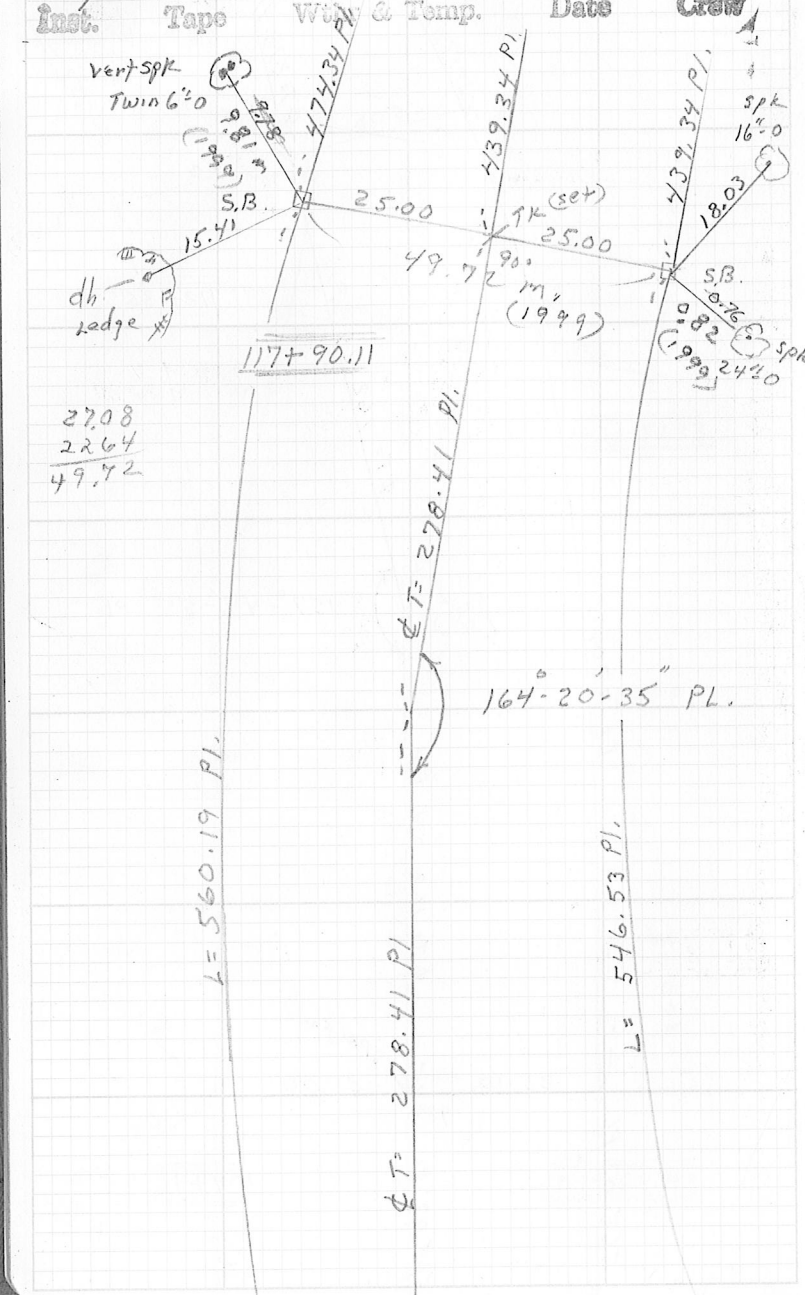 Inst. Tape Wthr & Temp. Date Crew
vert spk
Twin 6"0
9.78
9.81 m
(1999)
474.34 Pl.
439.34 Pl.
439.34 Pl.
spk
16"0
18.03
S.B.
25.00
TK (set)
25.00
S.B.
15.41
dh
Ledge
49.72 m
90°
(1999)
0.76
9.82
(1999)
spk
24"0
117+90.11
27.08
22.64
49.72
℄ T= 278.41 Pl.
164°-20'-35" PL.
L= 560.19 Pl.
L= 546.53 Pl.
℄ T= 278.41 Pl